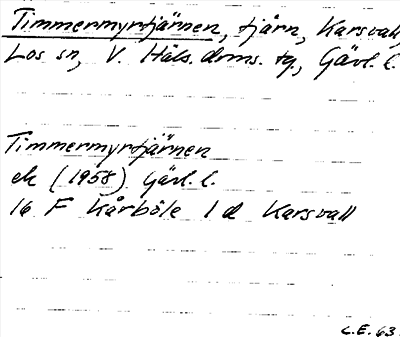 Timmermyrtjärnen, tjärn, Karsvall,
Los sn, V. Häls. doms. tg, Gävl. l.
Timmermyrtjärnen
ek (1958) Gävl. l.
16 F Kårböle 1 d Karsvall
C.E. 63